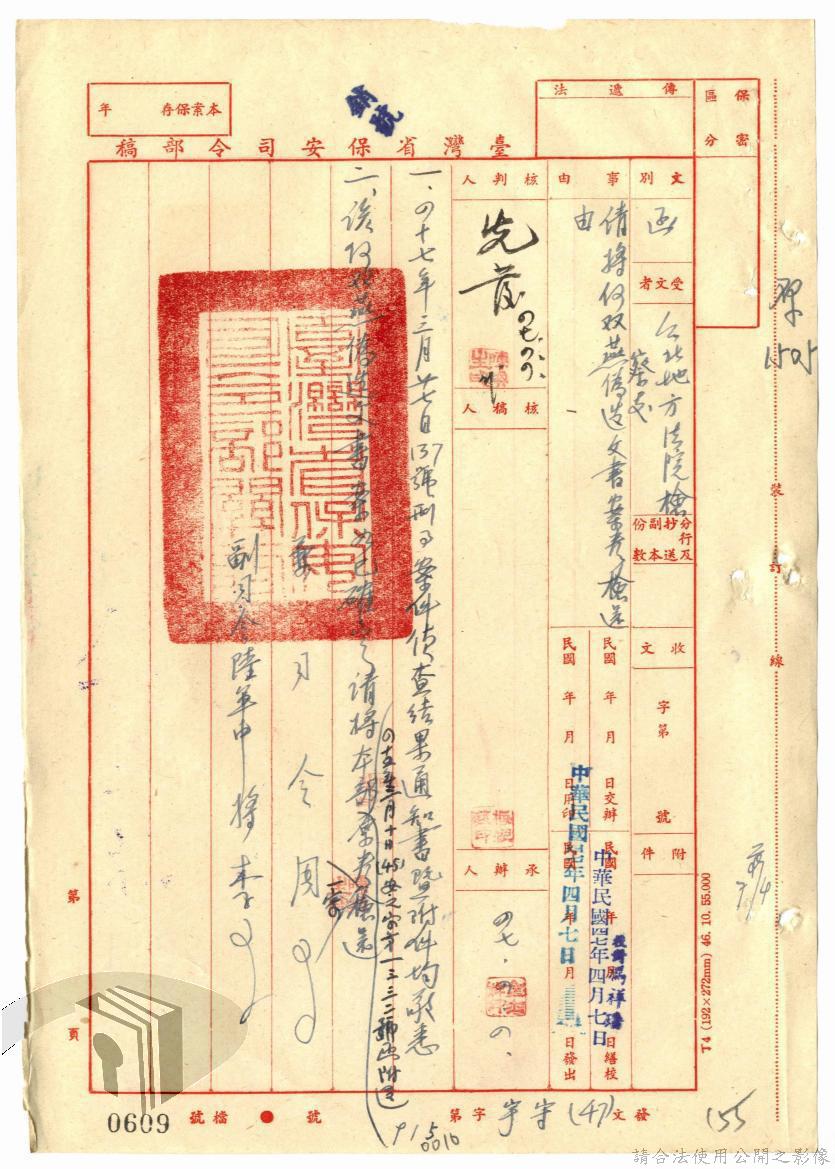 保密區分
傳遞法
本案保存 年
銷號
臺灣省保安司令部稿
文別
函
受文者
台北地方法院檢
蔡
分行及抄送副本份數
收文
字第
號
附件
事由
倩將何双燕偽造文書案卷檢還
由
民國 年 月 日交辦
民國 年 月 日繕校
民國 年 月 日用印
民國 年 月 日發出
中華民國四七年四月七日
中華民國四七年四月七日
核判人
先發
四七、
核稿人
承辦人
四七、四、
一、四十七年三月廿七日137號刑事案件偵查結果通知書暨附件均敬悉
二、該何双燕偽造文書案如已確定請將本部原卷檢還
四五年三月十日(45)安
號函附送
司令周
副司令陸軍中將李
裝
訂
線
1505
T4 (192×272mm) 46. 10. 55.000
第
頁
發文(47)
字第
號
● 檔號 0609
155
915
0010
請合法使用公開之影像